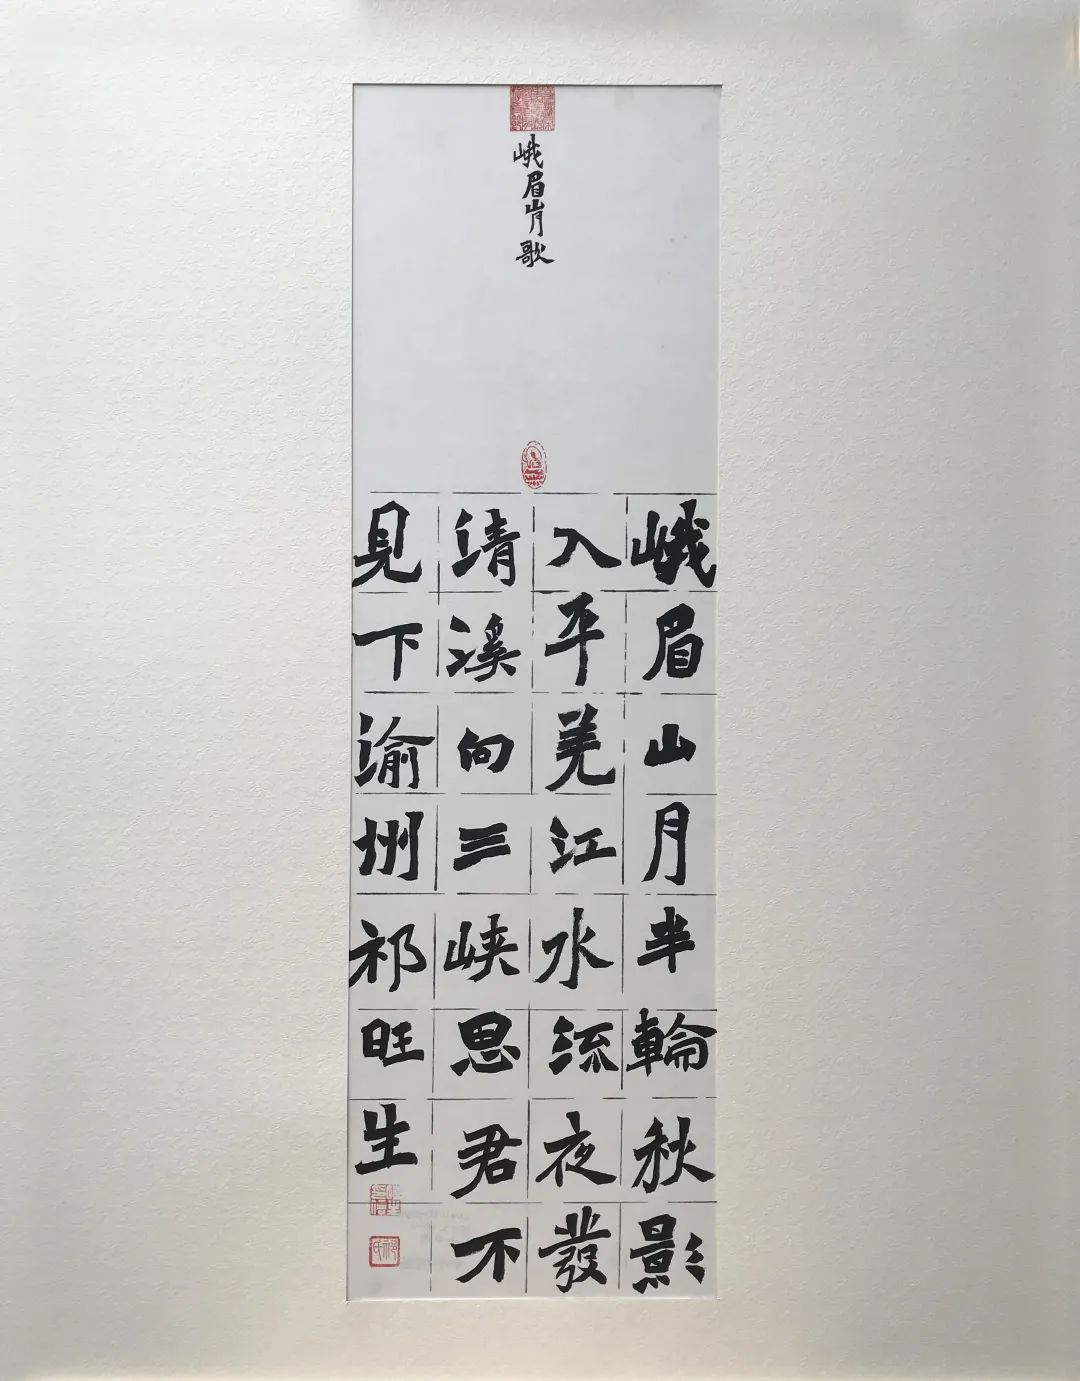 峨眉山月歌
峨眉山月半輪秋影
入平羌江水流夜發
清溪向三峡思君不
見下渝州祁旺生